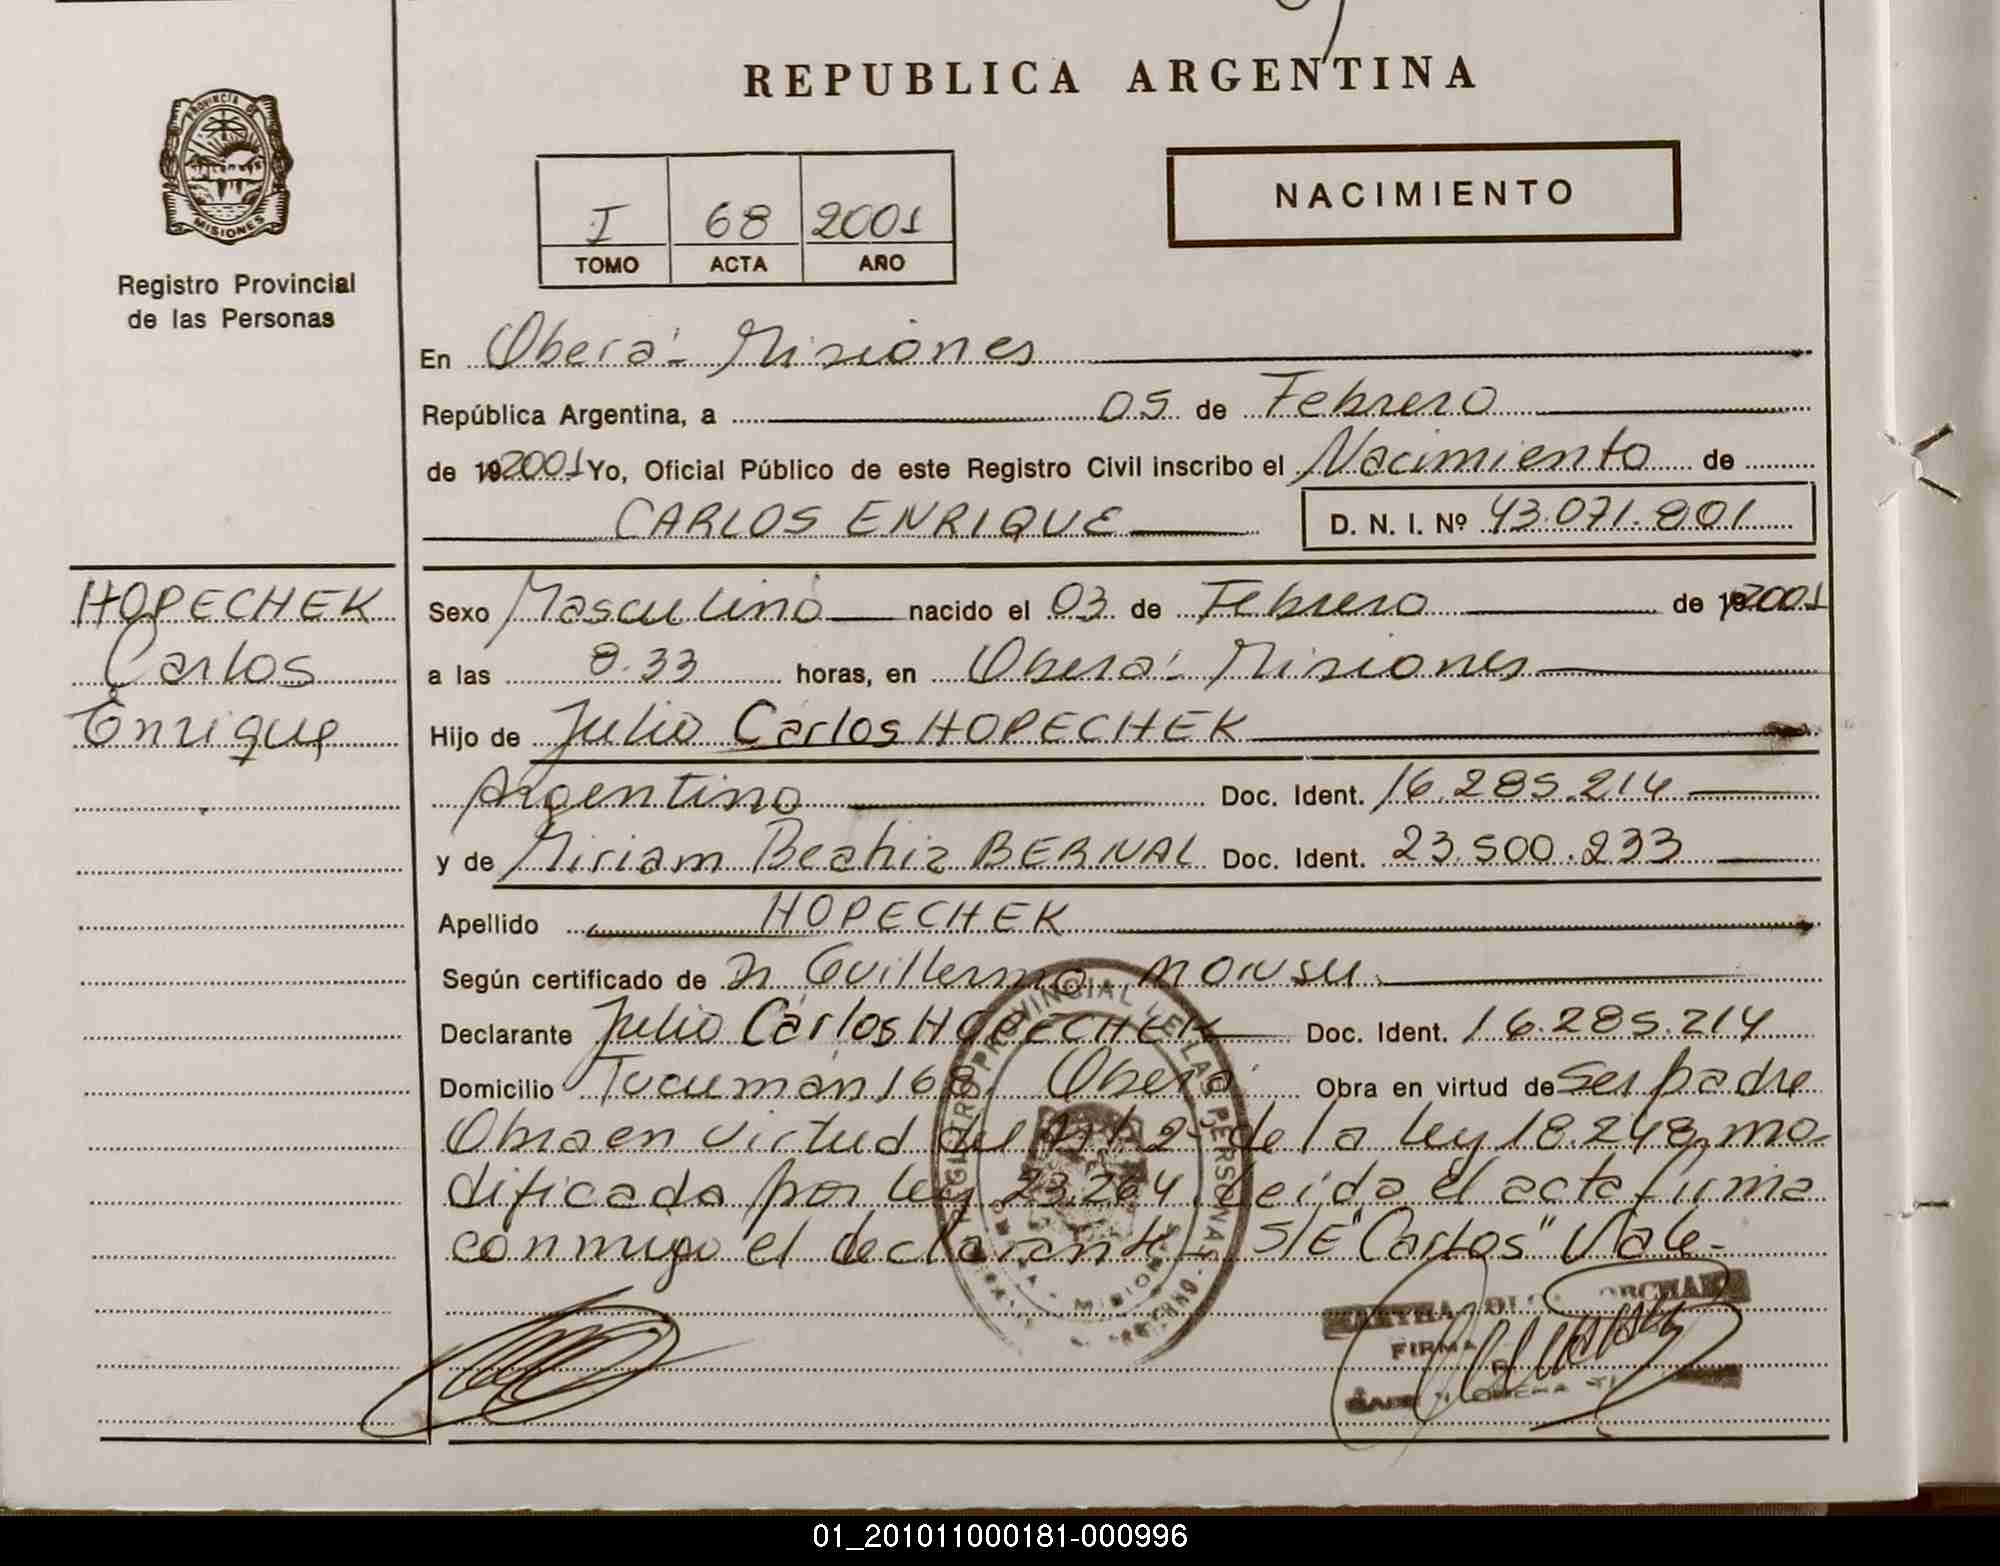 REPUBLICA ARGENTINA
PROVINCIA DE
MISIONES
Registro Provincial
de las Personas
I 68 2001
TOMO ACTA AÑO
NACIMIENTO
En Oberá - Misiones
República Argentina, a 05 de Febrero
de 192001 Yo, Oficial Público de este Registro Civil inscribo el Nacimiento de
CARLOS ENRIQUE D. N. I. Nº 43.071.801
HOPECHEK
Carlos
Enrique
Sexo Masculino nacido el 03 de Febrero de 192001
a las 8.33 horas, en Oberá - Misiones
Hijo de Julio Carlos HOPECHEK
Argentino Doc. Ident. 16.285.214
y de Miriam Beatriz BERNAL Doc. Ident. 23.500.233
Apellido HOPECHEK
Según certificado de Dr Guillermo MONSU
Declarante Julio Carlos HOPECHEK Doc. Ident. 16.285.214
Domicilio Tucumán 168. Oberá Obra en virtud de Ser padre
Obra en virtud del Art. 2 de la Ley 18.248, mo
dificada por Ley 23.264. Leída el acta firma
conmigo el declarante - S/E "Carlos" Vale -
REGISTRO PROVINCIAL DE LAS PERSONAS
MISIONES
FIRMA
01_201011000181-000996